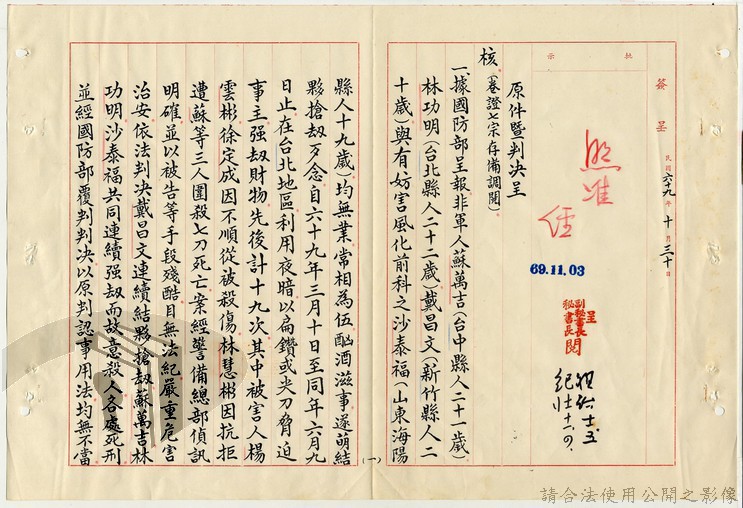 簽呈 民國六十九年十月三十日
批示
照准
69.11.03
呈
副秘書長
秘書長
閱
原件暨判決呈
核(卷證七宗存備調閱)
一、據國防部呈報非軍人蘇萬吉(台中縣人二十一歲)
林功明(台北縣人二十二歲)戴昌文(新竹縣人二
十歲)與有妨害風化前科之沙泰福(山東海陽
(一)
縣人十九歲)均無業常相為伍酗酒滋事遂萌結
夥搶劫歹念自六十九年三月十日至同年六月九
日止在台北地區利用夜暗以扁鑽或尖刀脅迫
事主強劫財物先後計十九次其中被害人楊
雲彬徐定成因不順從被殺傷林慧彬因抗拒
遭蘇等三人圍殺七刀死亡案經警備總部偵訊
明確並以被告等手段殘酷目無法紀嚴重危害
治安依法判決戴昌文連續結夥搶劫蘇萬吉林
功明沙泰福共同連續強劫而故意殺人各處死刑
並經國防部覆判判決以原判認事用法均無不當
請合法使用公開之影像